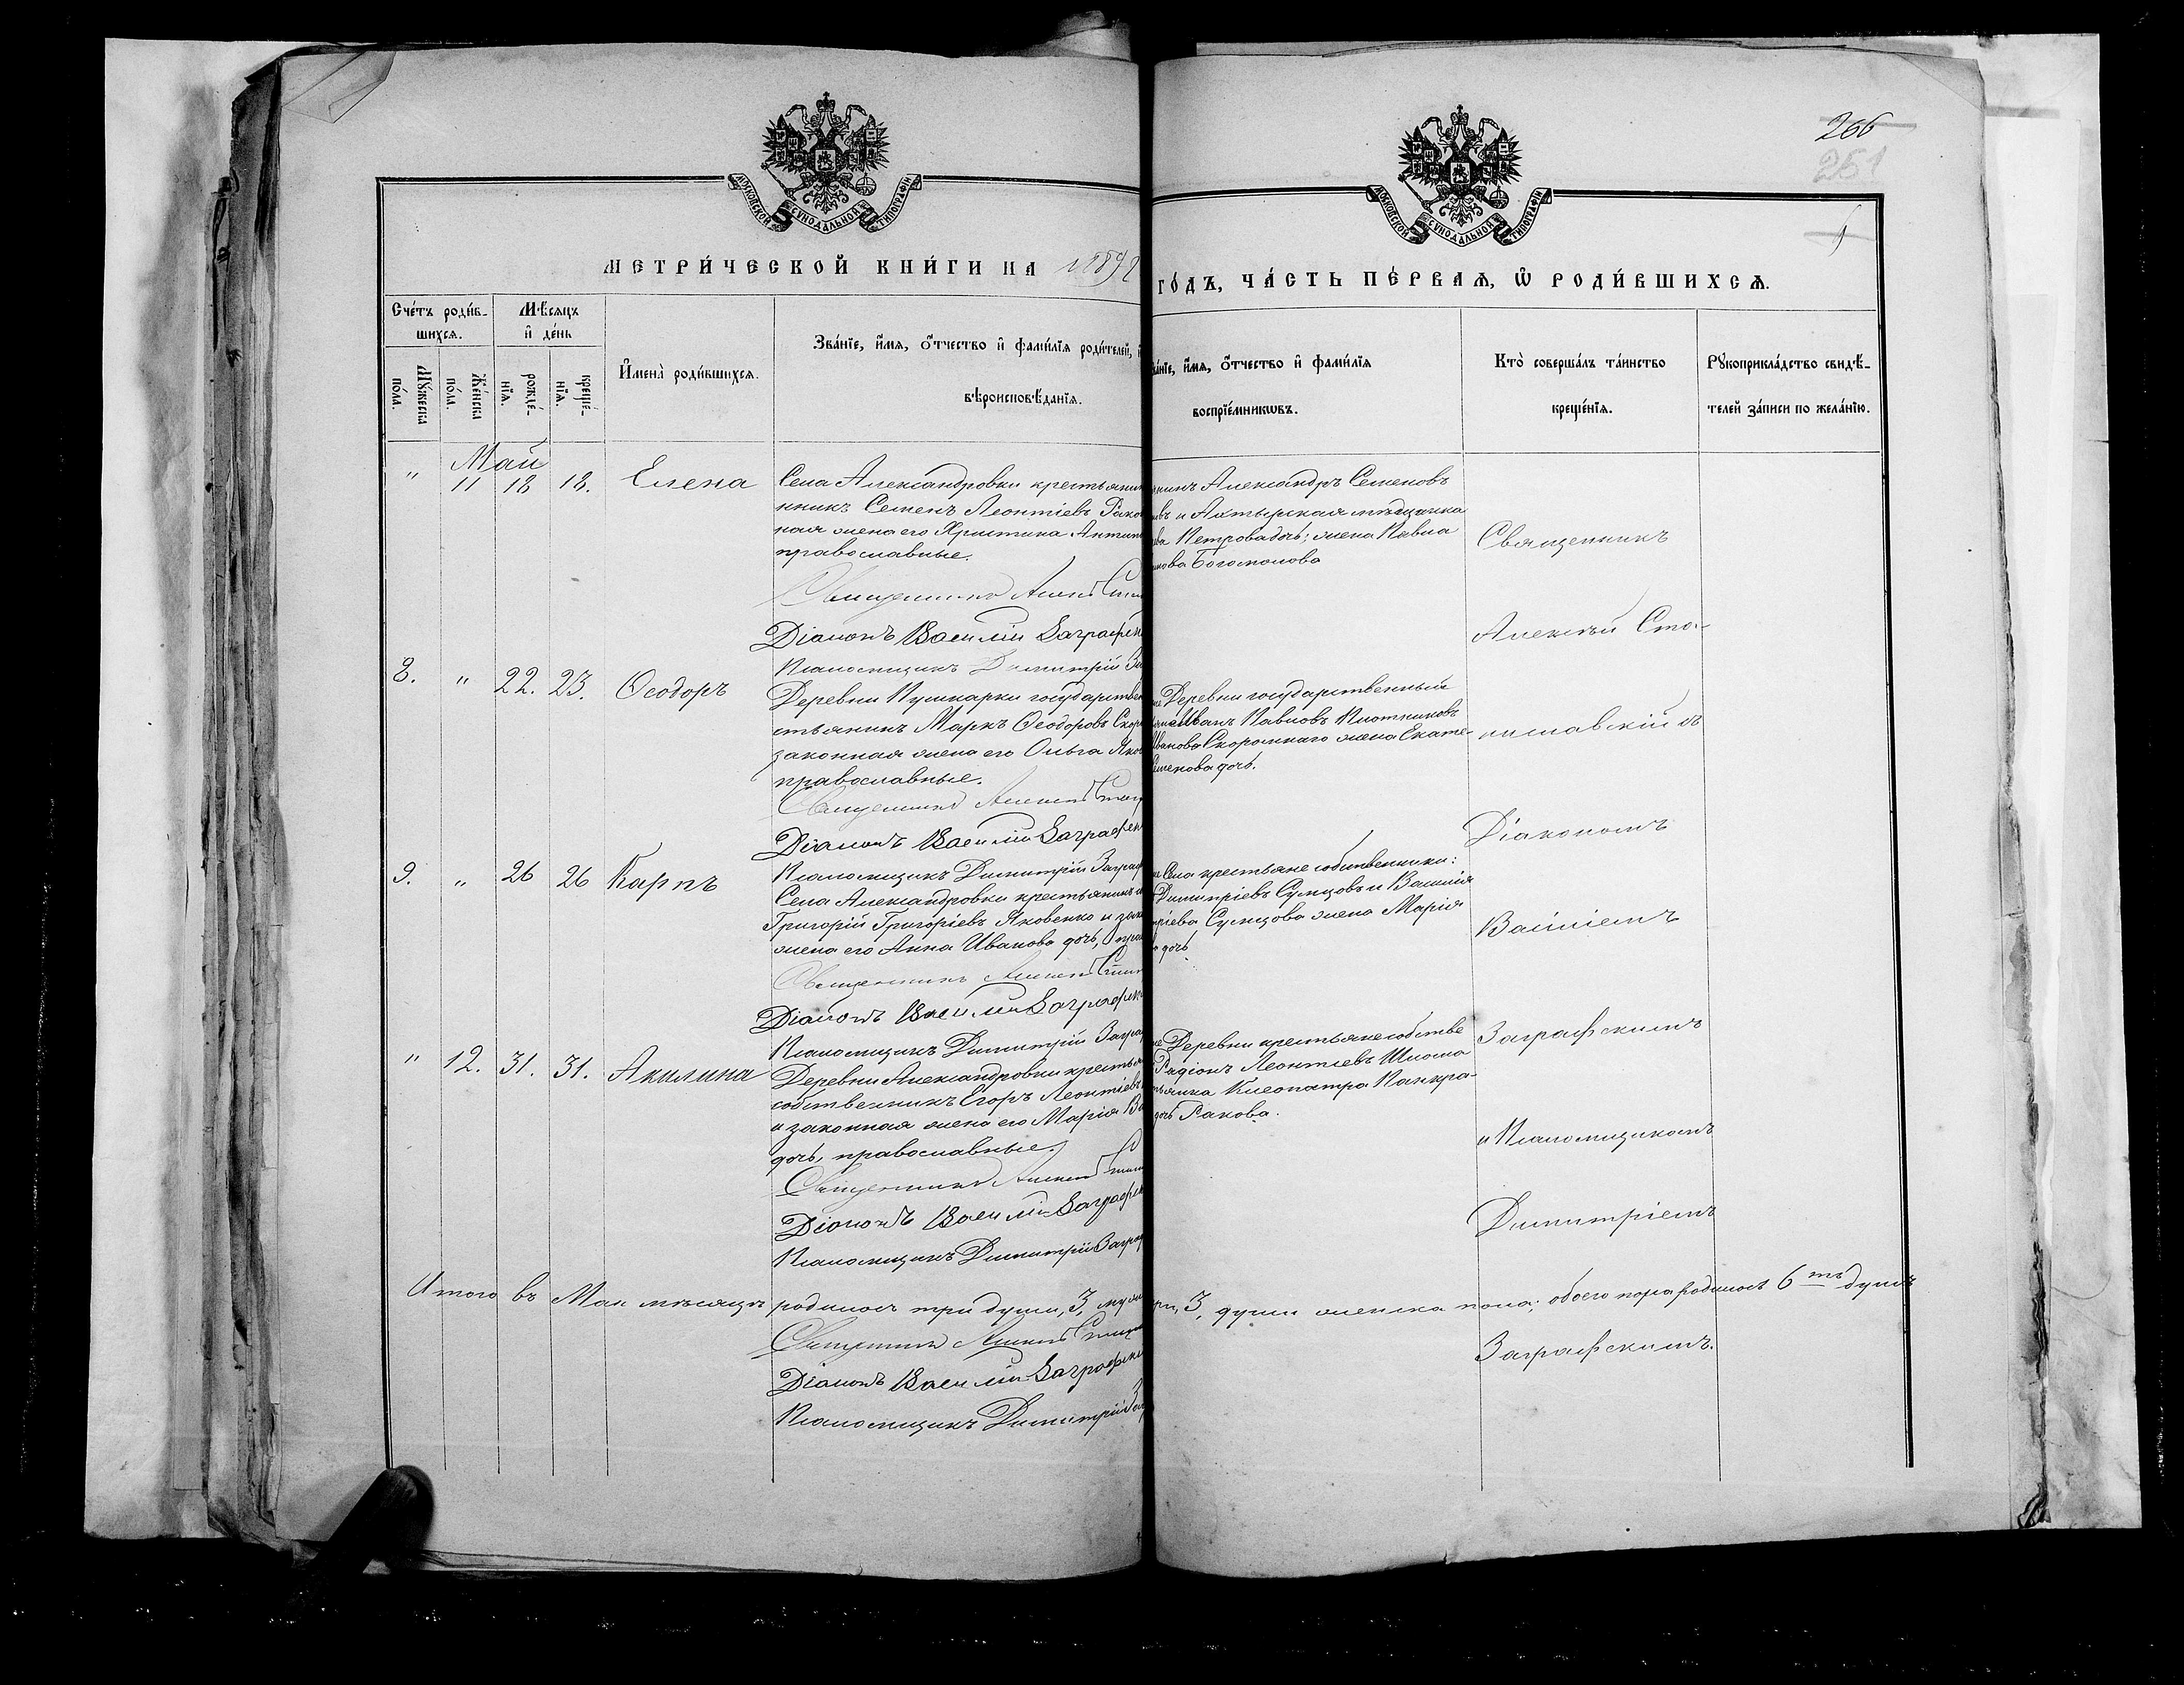 266
251
МОСКОВСКОЙ СѴНОДАЛЬНОЙ ТИПОГРАФІИ
МОСКОВСКОЙ СѴНОДАЛЬНОЙ ТИПОГРАФІИ
МЕТРИ́ЧЕСКОЙ КНИ́ГИ НА
ГО́ДЪ, ЧА́СТЬ ПЕ́РВАѦ, Ѡ҆ РОДИ́ВШИХСѦ.
Сче́тъ роди́в-
шихсѧ.
Мꙋ́жеска по́ла.
Же́нска по́ла.
Мѣ́сяцъ
и҆ де́нь
рожде́-нїѧ.
креще́-нїѧ.
И҆мена̀ роди́вшихсѧ.
Зва́нїе, и҆́мѧ, ѻ҆́тчество и҆ фами́лїѧ роди́телей, и҆
вѣроисповѣ́данїѧ.
ва́нїе, и҆́мѧ, ѻ҆́тчество и҆ фами́лїѧ
воспрїе́мникѡвъ.
Кто̀ соверша́лъ та́инство
креще́нїѧ.
Рꙋкоприкла́дство свидѣ́-
телей за́писи по жела́нїю.
Май
" 11 18 18. Елена
Села Александровки крестьянин
нникъ Семенъ Леонтіевъ Рако
ная жена его Христина Антип
православные.
Священникъ Алексѣй
Діаконъ Василій Заграфск
Псаломщикъ Димитрій За
янинъ Александръ Семеновъ
въ и Ахтырская мѣщанка
ва Петрова дочь; жена Павла
нова Богомолова
8. " 22. 23. Ѳеодоръ
Деревни Пушкарки государствен
стьянинъ Маркъ Ѳеодоровъ Скор
законная жена его Ольга Яков
православные.
Священникъ Алексѣй
Діаконъ Василій Заграфск
Псаломщикъ Димитрій Заграф
Деревни государственный
Иванъ Павловъ Плотниковъ
Иванова Скоромнаго жена Екате-
Семенова дочь.
9. " 26 26 Карпъ
Села Александровки крестьянинъ
Григорій Григоріевъ Яковенко и зак
жена его Анна Иванова дочь, прав
Священникъ Алексѣй
Діаконъ Василій Заграфск
Псаломщикъ Димитрій Заграф
Села крестьяне собственники:
Димитріевъ Сумцовъ и Василія
ріева Сумцова жена Марія
дочь.
" 12. 31. 31. Акилина
Деревни Александровки крестьян
собственникъ Егоръ Леонтіевъ
и законная жена его Марія Ва
дочь, православные.
Священникъ Алексѣй
Діаконъ Василій Заграфск
Псаломщикъ Димитрій Заграф
Деревни крестьяне собстве
Радіонъ Леонтіевъ
Клеопатра Панкра-
дочь Ракова.
Священникъ
Алексѣй Ста-
ниславскій съ
Діакономъ
Василіемъ
Заграфскимъ
и Псаломщикомъ
Димитріемъ
Заграфскимъ.
Итого въ Маѣ мѣсяцѣ родилось три души, 3, муж
3, души женска пола; обоего пола родилось 6 ть душъ
Священникъ Алексѣй
Діаконъ Василій Заграфск
Псаломщикъ Димитрій За